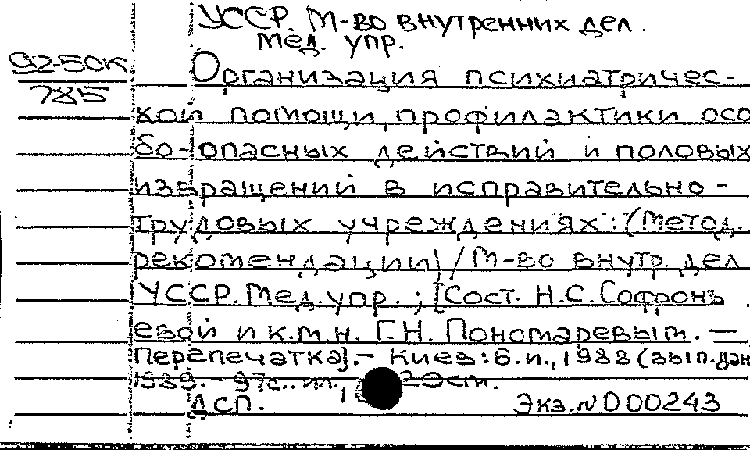 УССР. М-во внутренних дел.
Мед. упр.
92-50К
785
Организация психиатричес-
кой помощи, профилактики осо
бо-опасных действий и половых
извращений в исправительно-
трудовых учреждениях: (Метод.
рекомендации) / М-во внутр. дел
УССР. Мед. упр. ; [Сост. Н.С. Софронь
евой и к.м.н. Г.Н. Пономаревым. —
Перепечатка]. - Киев : Б.и., 1988 (вып. дан
1989. - 97с. ил.,
ДСП. Экз. N 000243